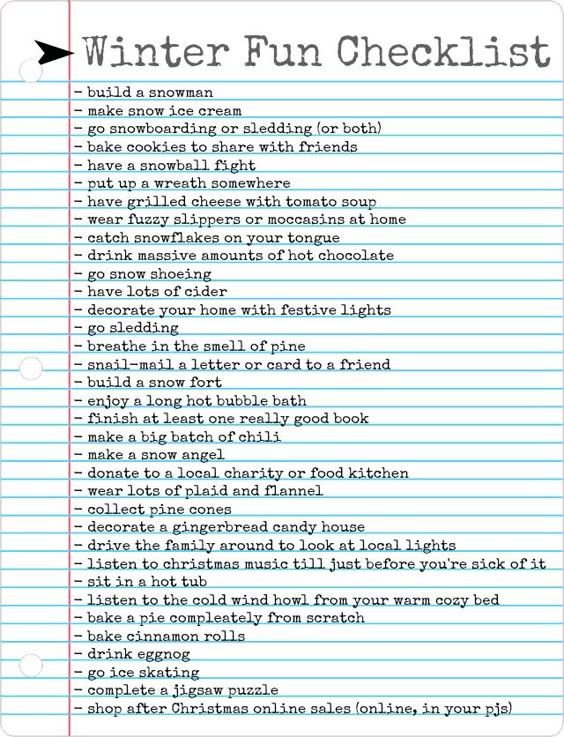 Winter Fun Checklist
- build a snowman
- make snow ice cream
- go snowboarding or sledding (or both)
- bake cookies to share with friends
- have a snowball fight
- put up a wreath somewhere
- have grilled cheese with tomato soup
- wear fuzzy slippers or moccasins at home
- catch snowflakes on your tongue
- drink massive amounts of hot chocolate
- go snow shoeing
- have lots of cider
- decorate your home with festive lights
- go sledding
- breathe in the smell of pine
- snail-mail a letter or card to a friend
- build a snow fort
- enjoy a long hot bubble bath
- finish at least one really good book
- make a big batch of chili
- make a snow angel
- donate to a local charity or food kitchen
- wear lots of plaid and flannel
- collect pine cones
- decorate a gingerbread candy house
- drive the family around to look at local lights
- listen to christmas music till just before you're sick of it
- sit in a hot tub
- listen to the cold wind howl from your warm cozy bed
- bake a pie compleately from scratch
- bake cinnamon rolls
- drink eggnog
- go ice skating
- complete a jigsaw puzzle
- shop after Christmas online sales (online, in your pjs)